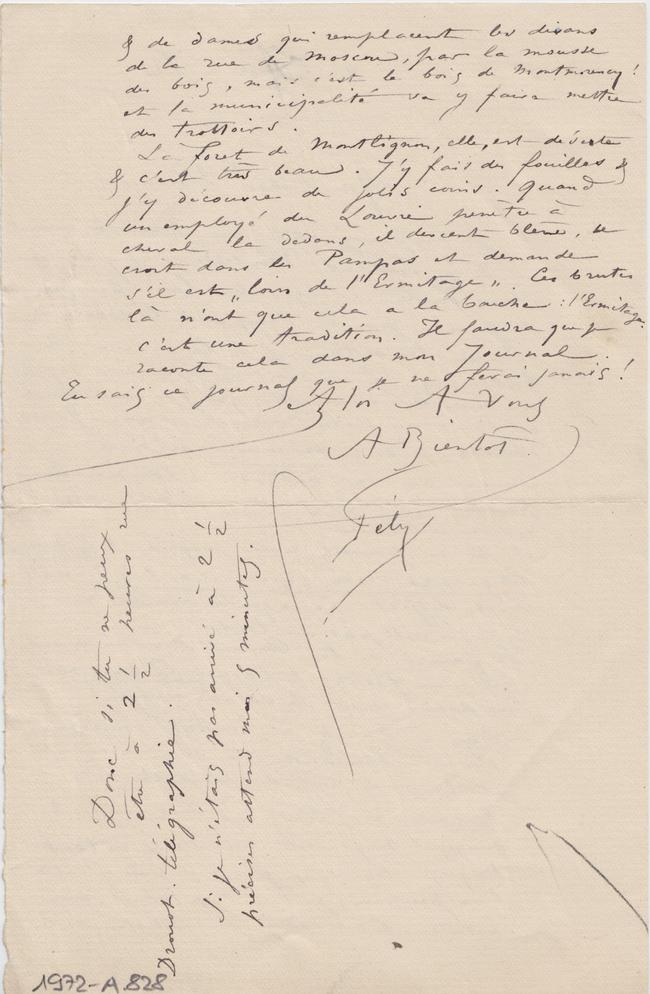 & de dames qui remplacent les divans
de la rue de Moscou, par la mousse
des bois, mais c'est le bois de Montmorency !
et la municipalité va y faire mettre
des trottoirs.
La foret de Montlignon, elle, est déserte
& c'est très beau. J'y fais des fouilles &
j'y découvre de jolis coins. Quand
un employé du Louvre penètre à
cheval la dedans, il descent blême, se
croit dans les Pampas et demande
s'il est „loin de l'Ermitage". Ces brutes
là n'ont que cela a la bouche : l'Ermitage.
c'est une tradition. Il faudra que je
raconte cela dans mon Journal.
Tu sais ce journal que je ne ferai jamais !
A toi A Vous
A Bientot.
Fély
Donc si tu ne peux
être à 2 1/2 heures rue
Drouot. télégraphie.
Si je n'étais pas arrivé à 2 1/2
précises attend moi 5 minutes.
1972-A.828